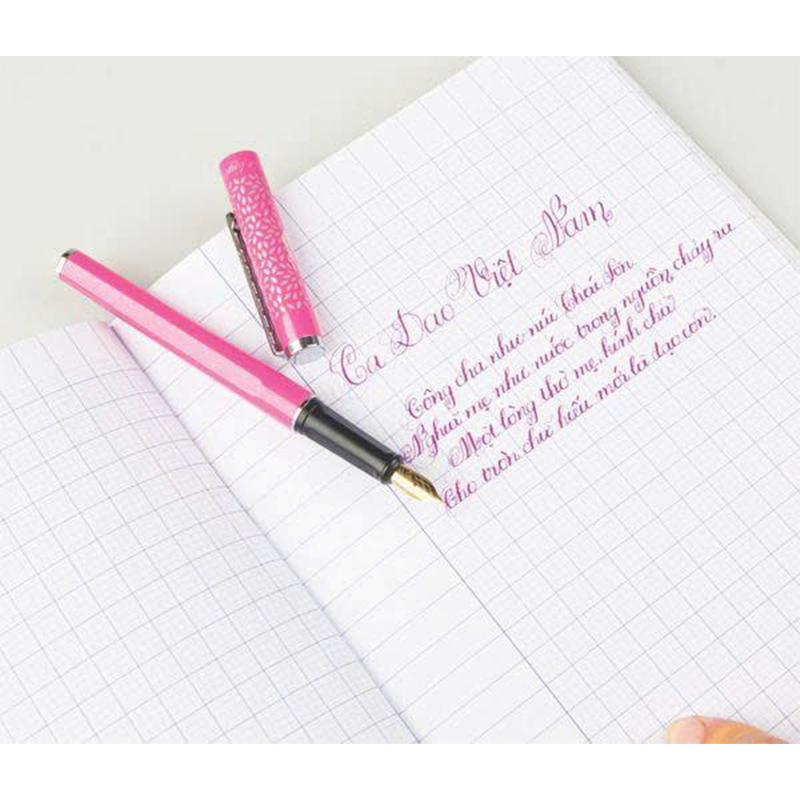 Ca Dao Việt Nam
Công cha như núi Thái Sơn
Nghĩa mẹ như nước trong nguồn chảy ra
Một lòng thờ mẹ, kính cha
Cho tròn chữ hiếu mới là đạo con.